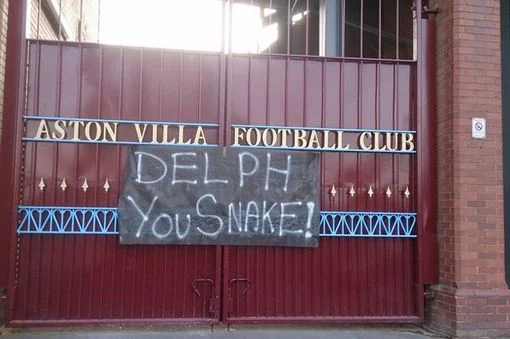 ASTON VILLA FOOTBALL CLUB
DELPH
YOU SNAKE!